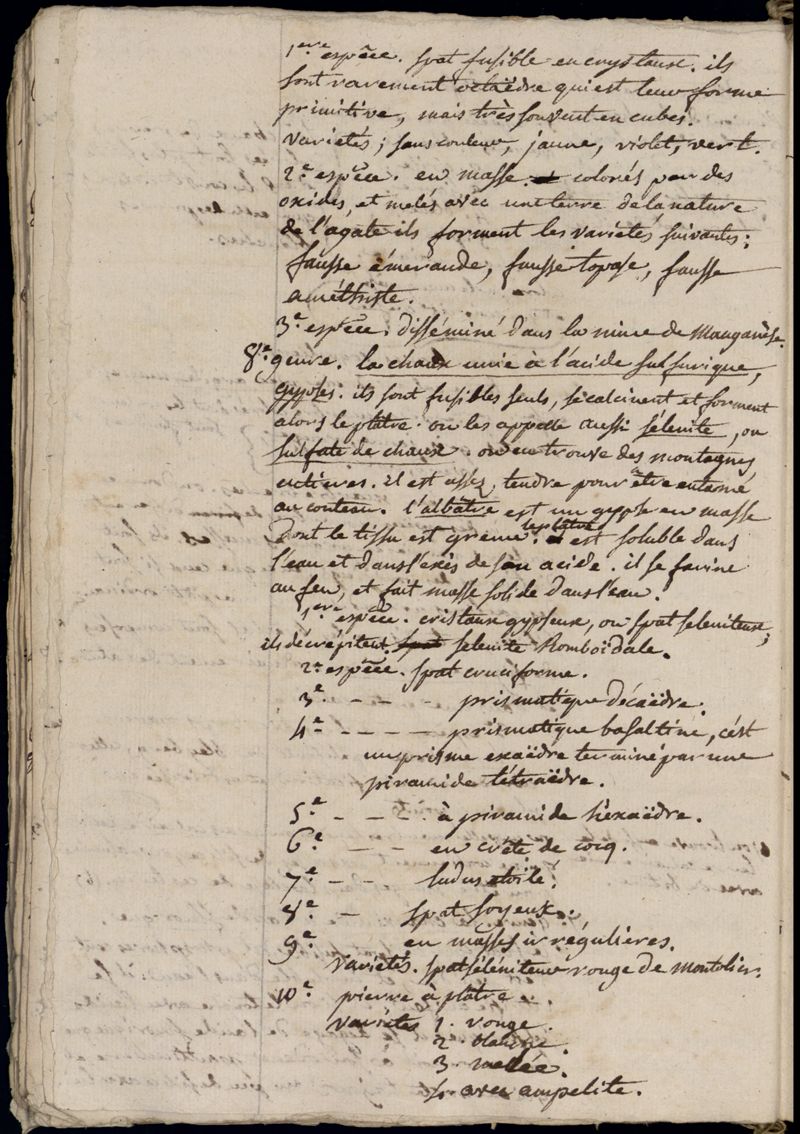 1ere espèce. spat fusible en crystaux. ils
sont rarement octaëdre qui est leur forme
primitive, mais très souvent en cubes.
variétés; sans couleur, jaune, violet, vert.
2e espèce. en masse. colorés par des
oxides, et melés avec une terre de la nature
de l'agate ils forment les variétés suivantes:
fausse émeraude, fausse topase, fausse
améthiste.
3e espèce. disséminé dans la mine de Manganèse.
8e genre. la chaux unie à l'acide sulfurique,
gypses. ils sont fusibles seuls, se calcinent et forment
alors le plâtre. on les appelle aussi sélenite, ou
sulfate de chaux. on en trouve des montagnes
entieres. il est assez tendre pour être entamé
au couteau. l'albâtre est un gypse en masse
dont le tissu est grenu. le plâtre est soluble dans
l'eau et dans l'exès de son acide. il se farine
au feu, et fait masse solide dans l'eau.
1ere espèce. cristaux gypseux, ou spat seleniteux,
ils décrépitent. selenite Romboïdale.
2e espèce. spat cruciforme.
3e - - - prismatique décaëdre.
4e - - - - prismatique basaltine, c'est
un prisme exaëdre terminé par une
piramide tétraëdre.
5e - - - à piramide hexaëdre.
6e - - en crète de cocq.
7e - - ludus etoilé.
8e - spat soyeux.
9e en masses irrégulières.
variétés. spat séléniteux rouge de Montolier.
10e pierre à plâtre.
variétés 1. rouge.
2. blanche.
3. melée.
4. avec ampelite.